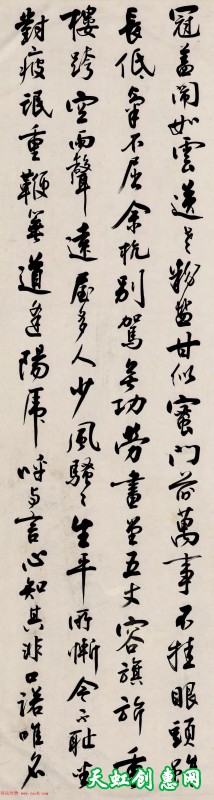 冠蓋鬧如雲送老鹽甘似蜜門前萬事不挂眼頭雖
長低氣不屈余杭別駕無功勞畫堂五丈容旗旄重
樓跨空雨聲遠屋多人少風騷〻生平所慚今不耻坐
對疲氓更鞭箠道逢陽虎呼與言心知其非口諾唯
天虹创惠网